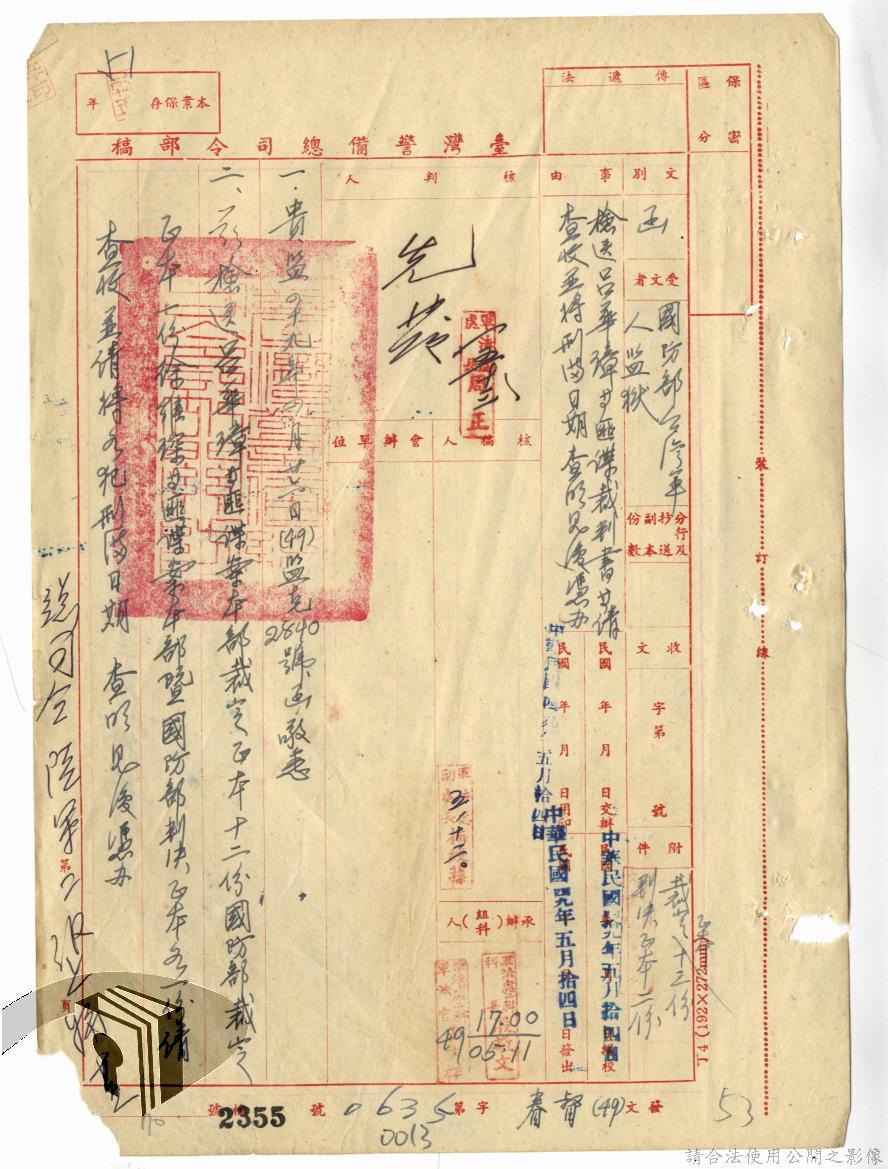 保密
區分
傳遞法
本業保存 年
臺灣警備總司令部稿
文別
函
受文者
國防部台灣軍人監獄
分行及抄送副本份數
收文
字第
號
附件
裁定十三份
判決正本二份
事由
檢送呂華璋等匪諜裁判書廿倩
查收並將刑滿日期查明見復憑办
民國 年 月 日交辦
民國 年 月 日用印
中華民國四九年五月拾四日
中華民國四九年五月拾四日發出
核判人
核稿人
會辦單位
承辦(組科)人
五、十二。
17.00
49/05.11
一、貴監四十九年四月廿六日(49)監克2840號函敬悉
二、茲檢送呂華璋等匪諜案本部裁定正本十二份國防部裁定
正本一份徐維琛等匪諜案本部暨國防部判決正本各一份請
查收並倩將各犯刑滿日期 查明見復憑办
總司令陸軍
第
頁
裝
訂
線
J T 4 (192×272mm)
發文(49)督春字第0635號
0013
檔號2355
53
51
請合法使用公開之影像